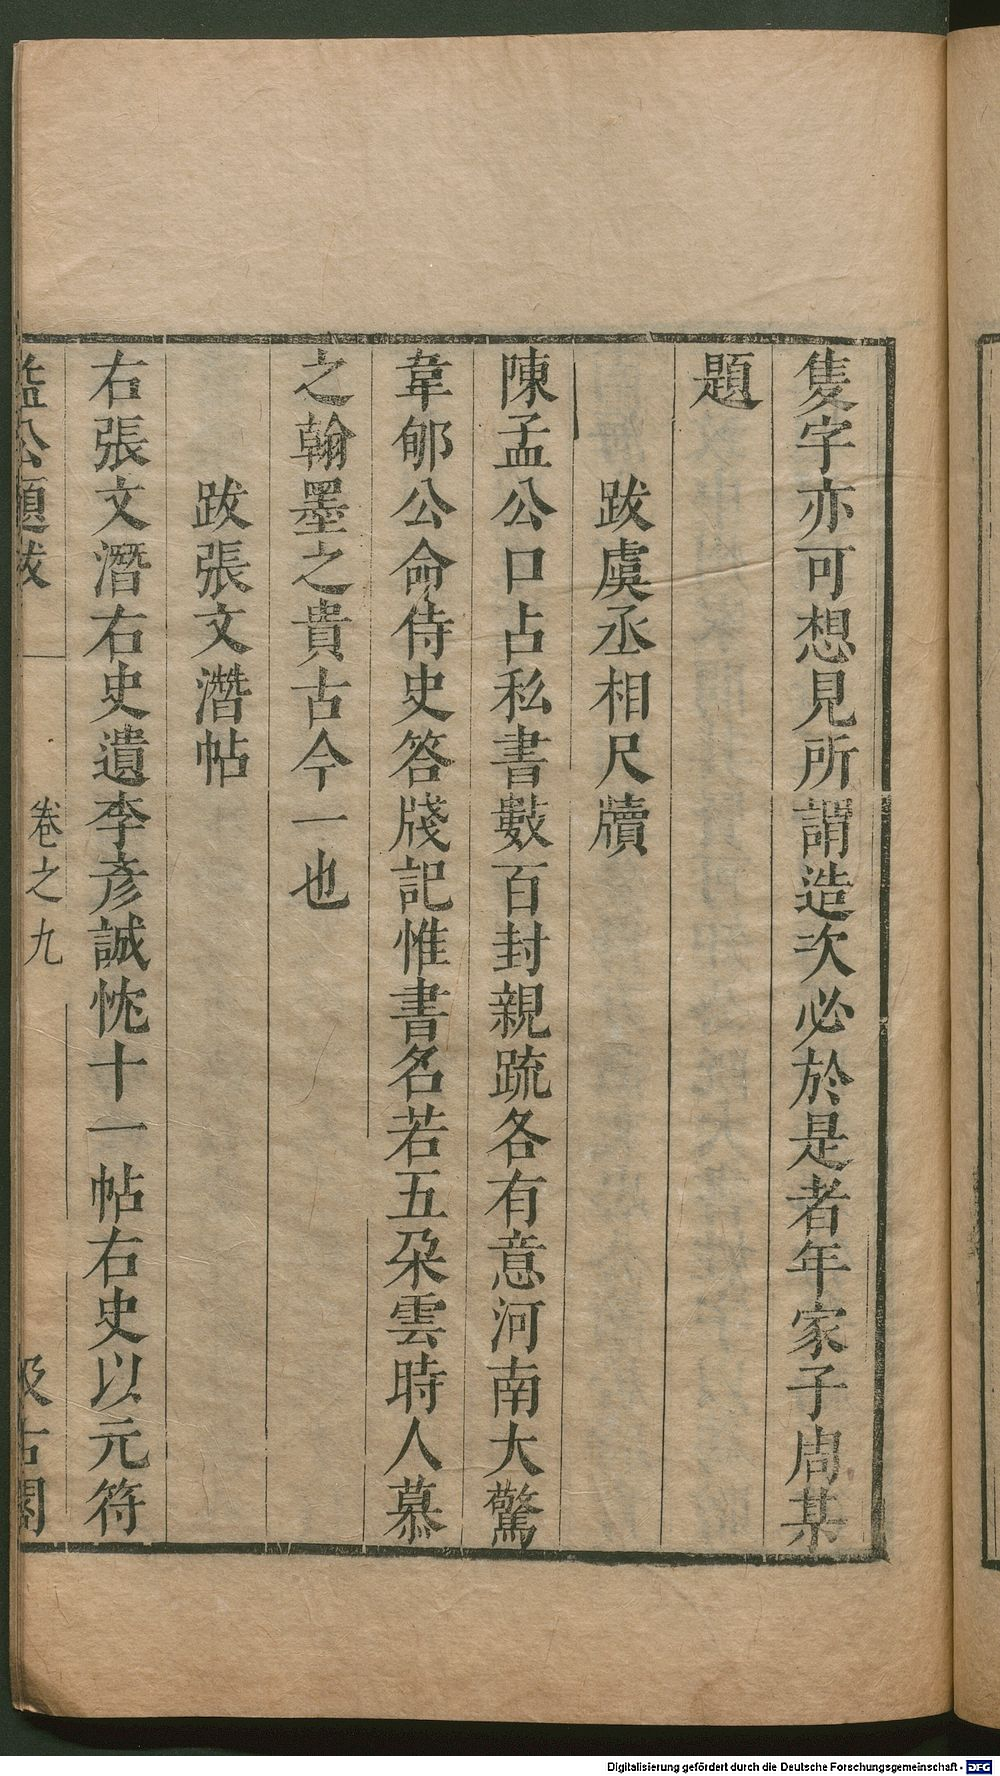 隻字亦可想見所謂造次必於是者年家子周某
題
跋虞丞相尺牘
陳孟公口占私書數百封親疏各有意河南大驚
韋郇公命侍史答牋記惟書名若五朶雲時人慕
之翰墨之貴古今一也
跋張文潛帖
右張文潛右史遺李彥誠忱十一帖右史以元符
益公題跋
卷之九
汲古閣
Digitalisierung gefördert durch die Deutsche Forschungsgemeinschaft - DFG